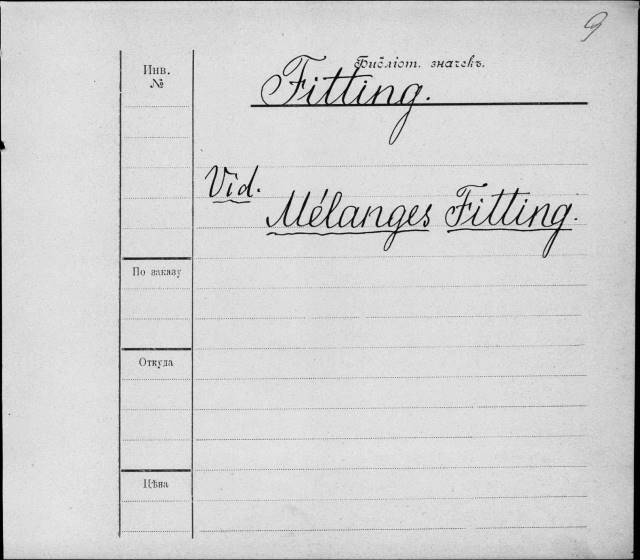 9
Инв.
№
Библіот. значекъ.
Fitting.
Vid.
Mélanges Fitting.
По заказу
Откуда
Цѣна